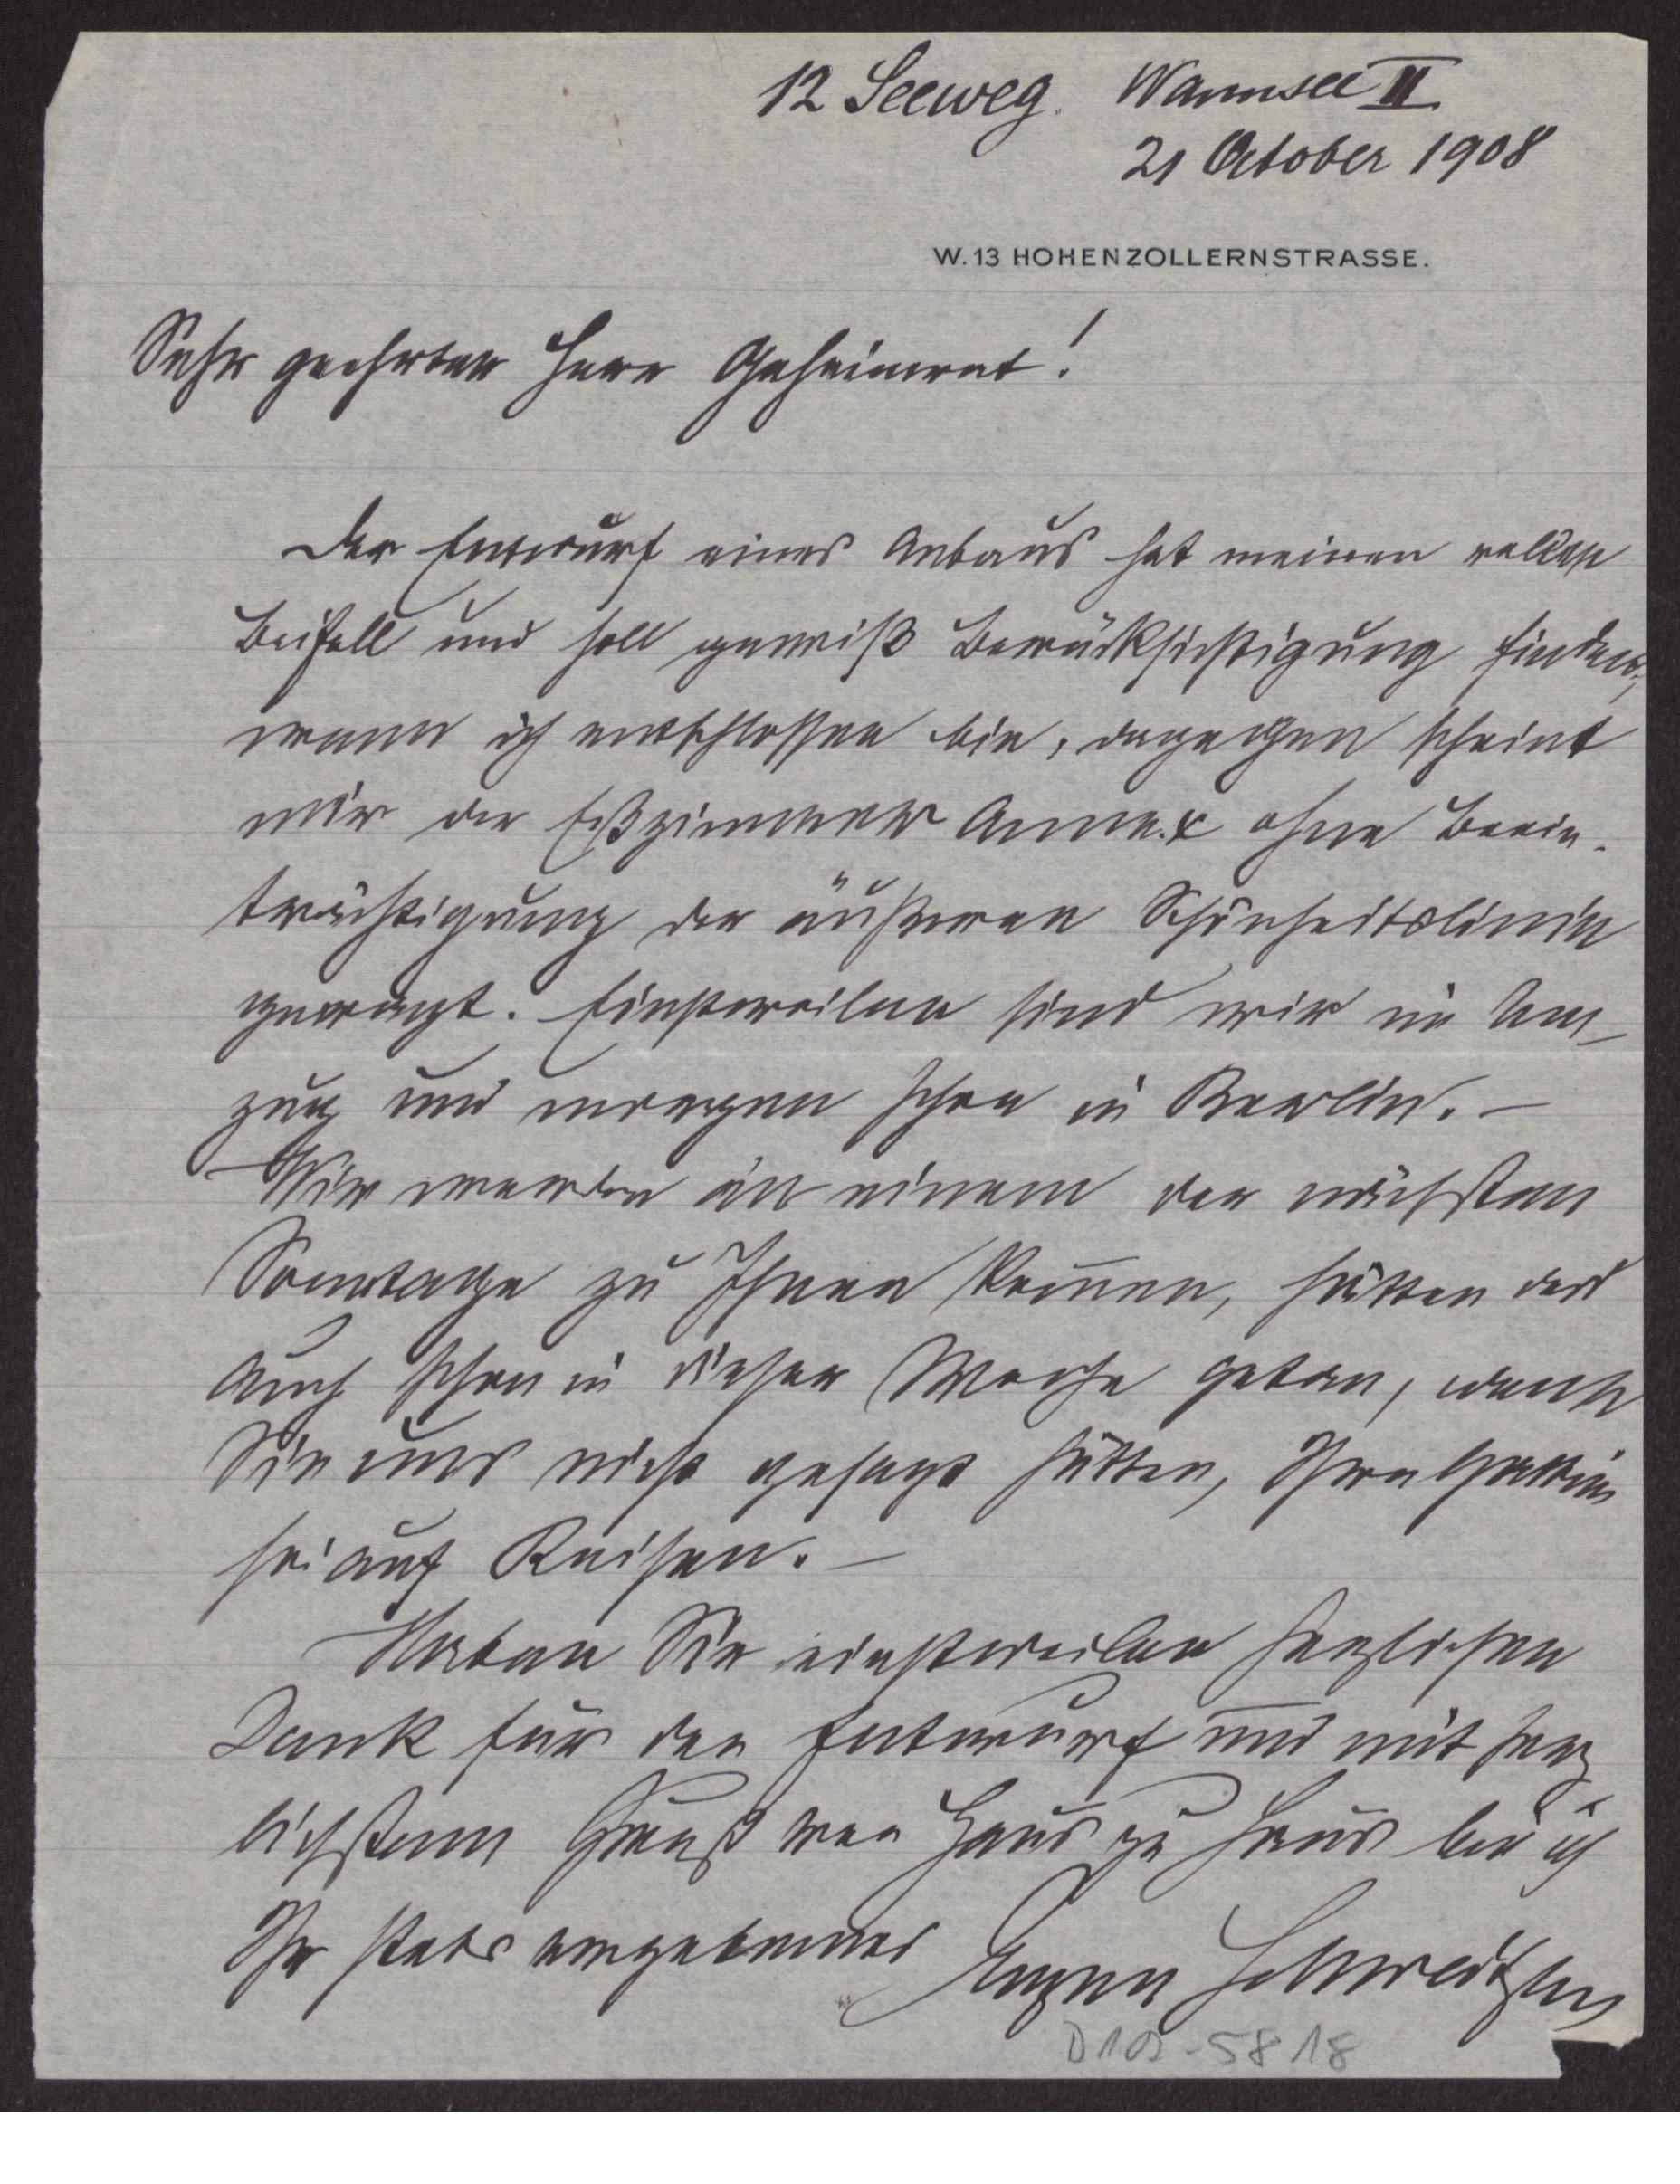 12 Seeweg. Wannsee II
21 October 1908
W. 13 HOHENZOLLERNSTRASSE.
Sehr geehrter Herr Geheimrat!
Der Entwurf eines Anbaus hat meinen vollen
Beifall und soll gewiß Berücksichtigung finden,
wenn ich entschlossen bin, dagegen scheint
mir der Eßzimmer Annex ohne Beein-
trächtigung der äußeren Schönheitslinien
gewagt. Einstweilen sind wir im Um-
zug und morgen schon in Berlin. –
Wir werden an einem der nächsten
Sonntage zu Ihnen kommen, hätten das
auch schon in dieser Woche getan, wenn
Sie uns nicht gesagt hätten, Ihre Gattin
sei auf Reisen. –
Haben Sie einstweilen herzlichen
Dank für den Entwurf und mit herz-
lichstem Gruß von Haus zu Haus bin ich
Ihr stets ergebener Eugen Schweitzer
D102-5818